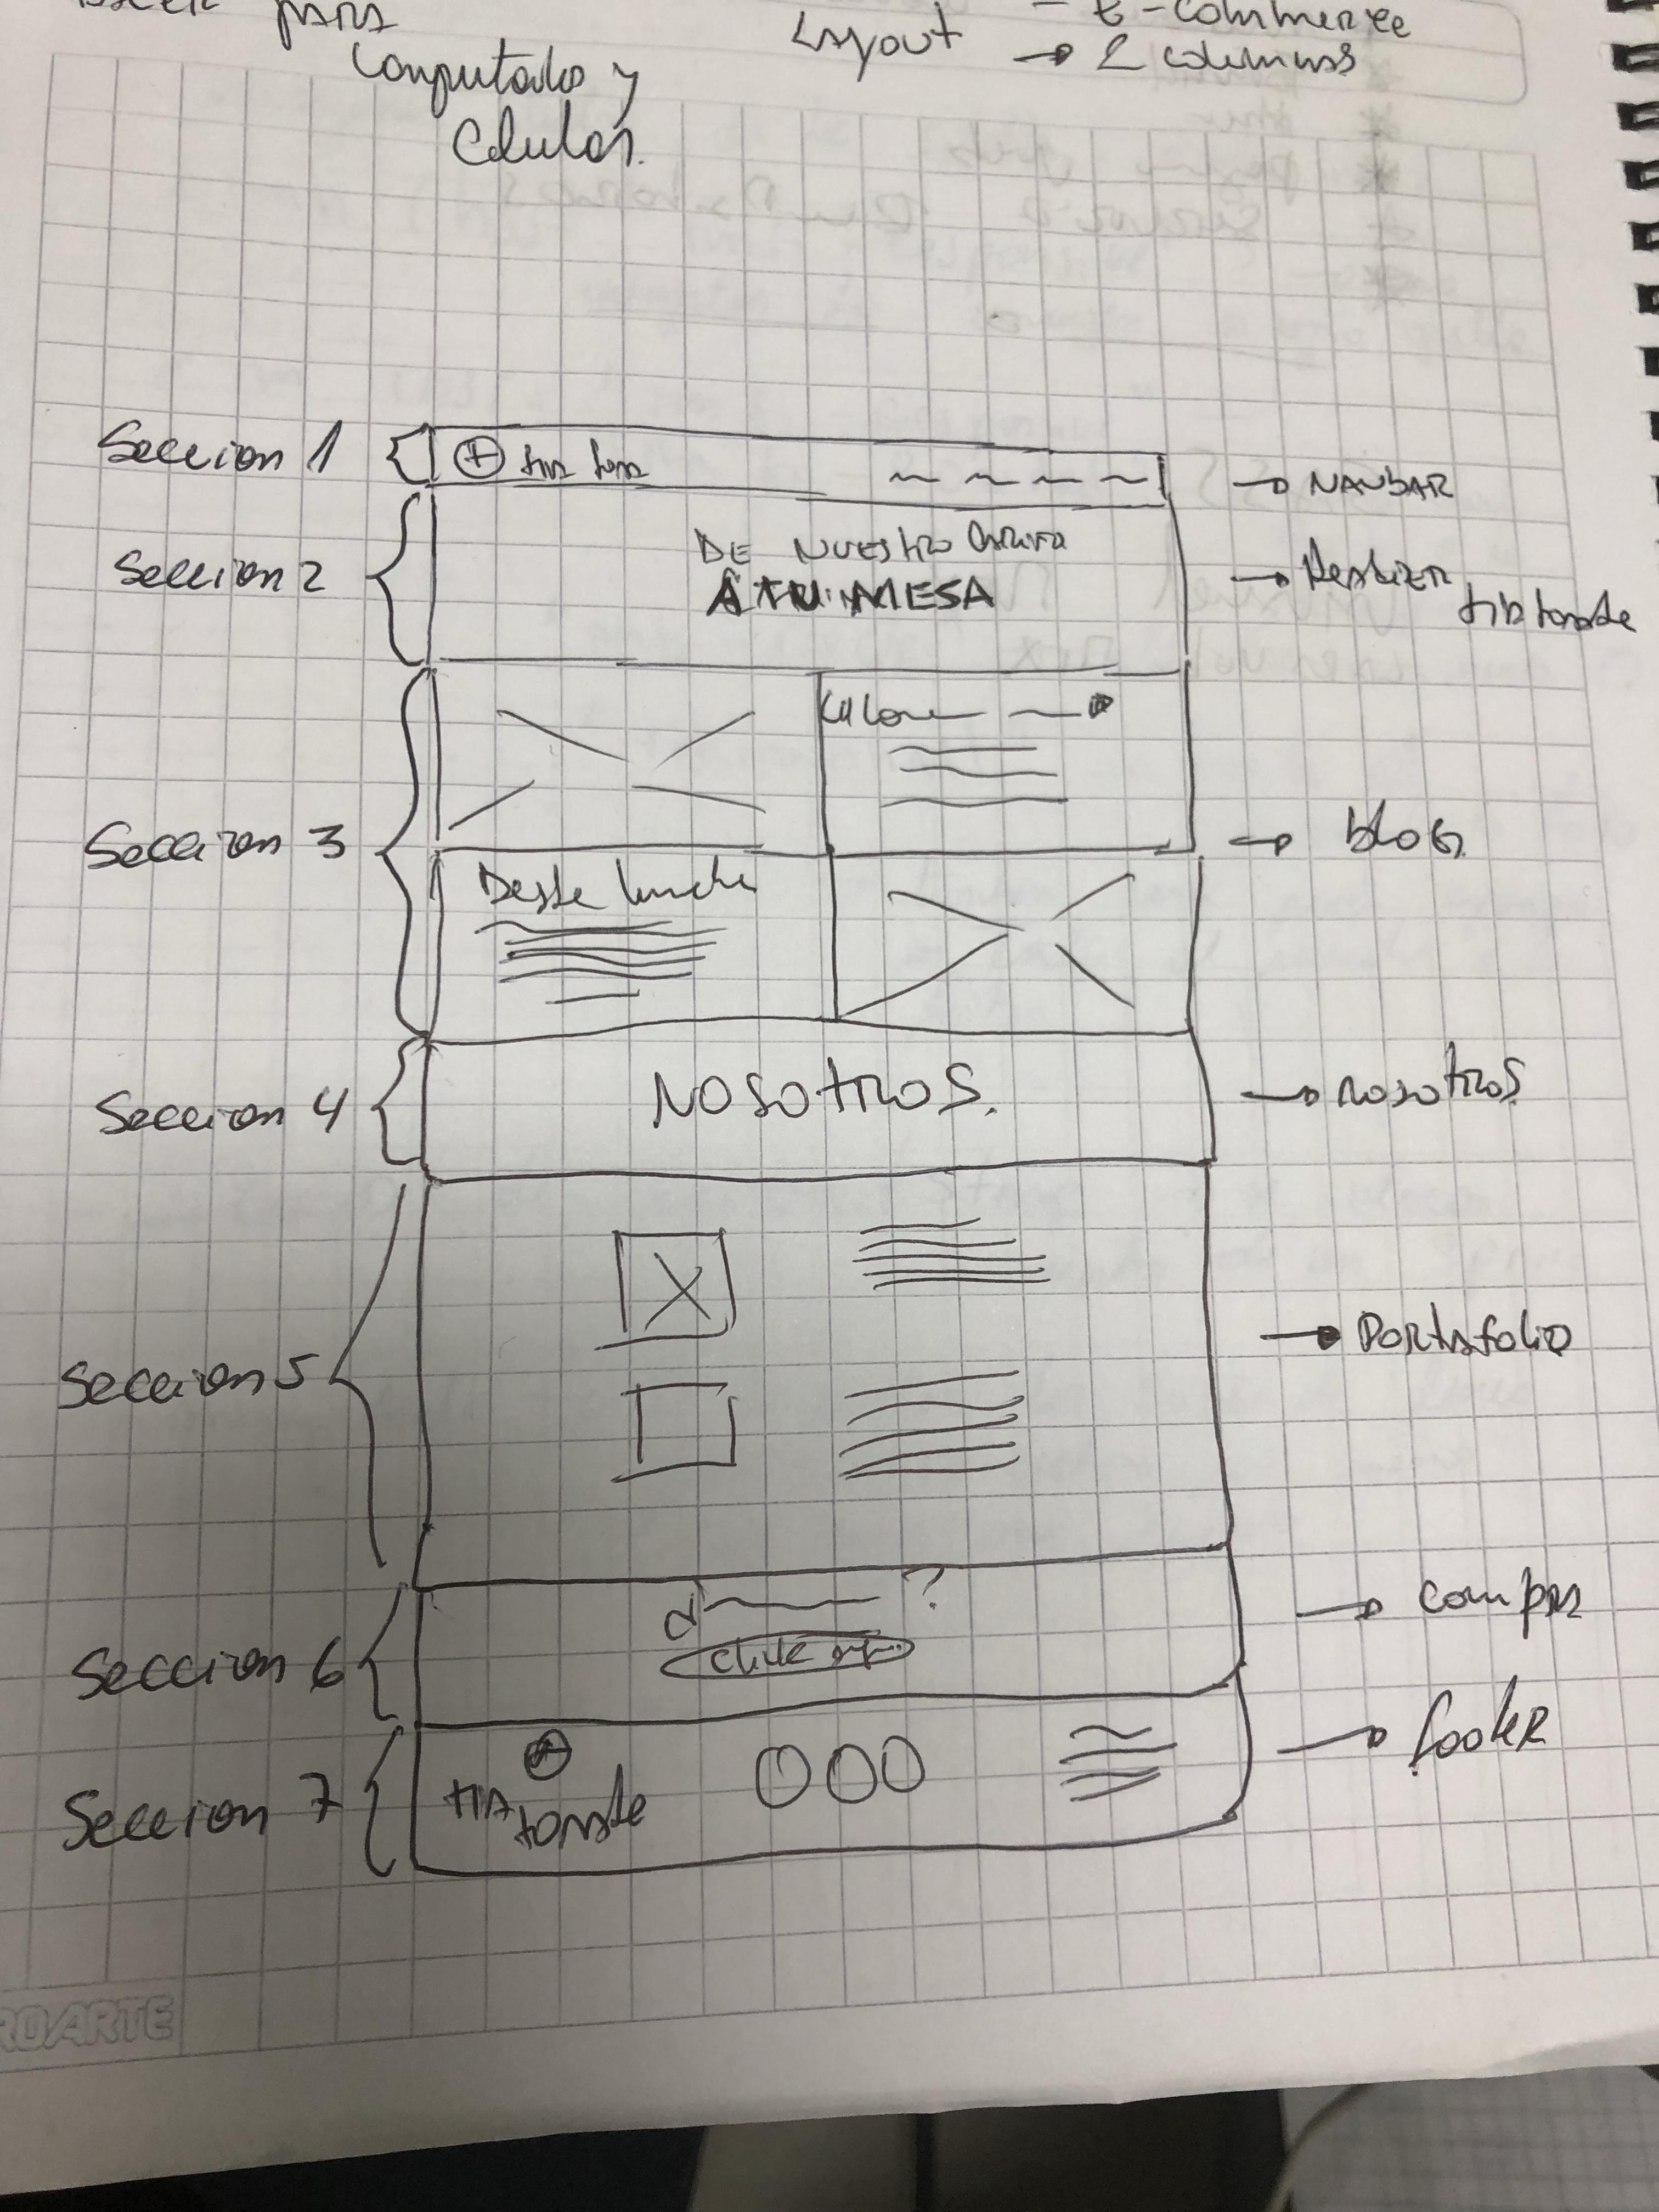 para
Computador y
Celular.
Layout
- E-Commerce
→ 2 columnas
Seccion 1
tia toma
→ NAVBAR
Seccion 2
DE NUESTRO
A TU MESA
→ Realizar
tia tomate
Seccion 3
Desde
→ blog
Seccion 4
NOSOTROS.
→ nosotros
Seccion 5
→ Portafolio
Seccion 6
¿ ?
click
→ compra
Seccion 7
TIA
tomate
→ footer
ROARTE